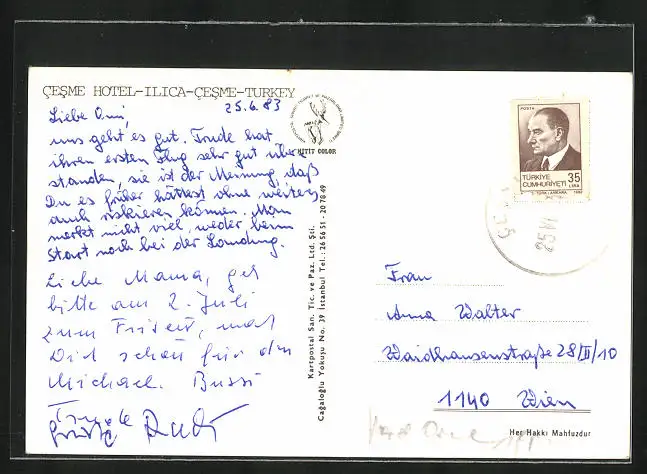 ÇEŞME HOTEL-ILICA-ÇEŞME-TURKEY
25.6.83
Liebe Omi,
uns geht es gut. Trude hat
ihren ersten Flug sehr gut über
standen, sie ist der Meinung, daß
Du es früher hättest ohne weiters
auch riskieren können. Man
merkt nicht viel, weder beim
Start noch bei der Landung.
Liebe Mama, geh
bitte am 2. Juli
zum Friseur, mach
Dich schön für den
Michael. Bussi
Trude
Rudi
HİTİT COLOR
Kartpostal San. Tic. ve Paz. Ltd. Şti.
Cağaloğlu Yokuşu No. 39 İstanbul Tel.: 26 56 51 - 20 78 49
POSTA
TÜRKİYE
CUMHURİYETİ
35
LİRA
Frau
Anna Walter
Waidhausenstraße 28/II/10
1140 Wien
Her Hakkı Mahfuzdur